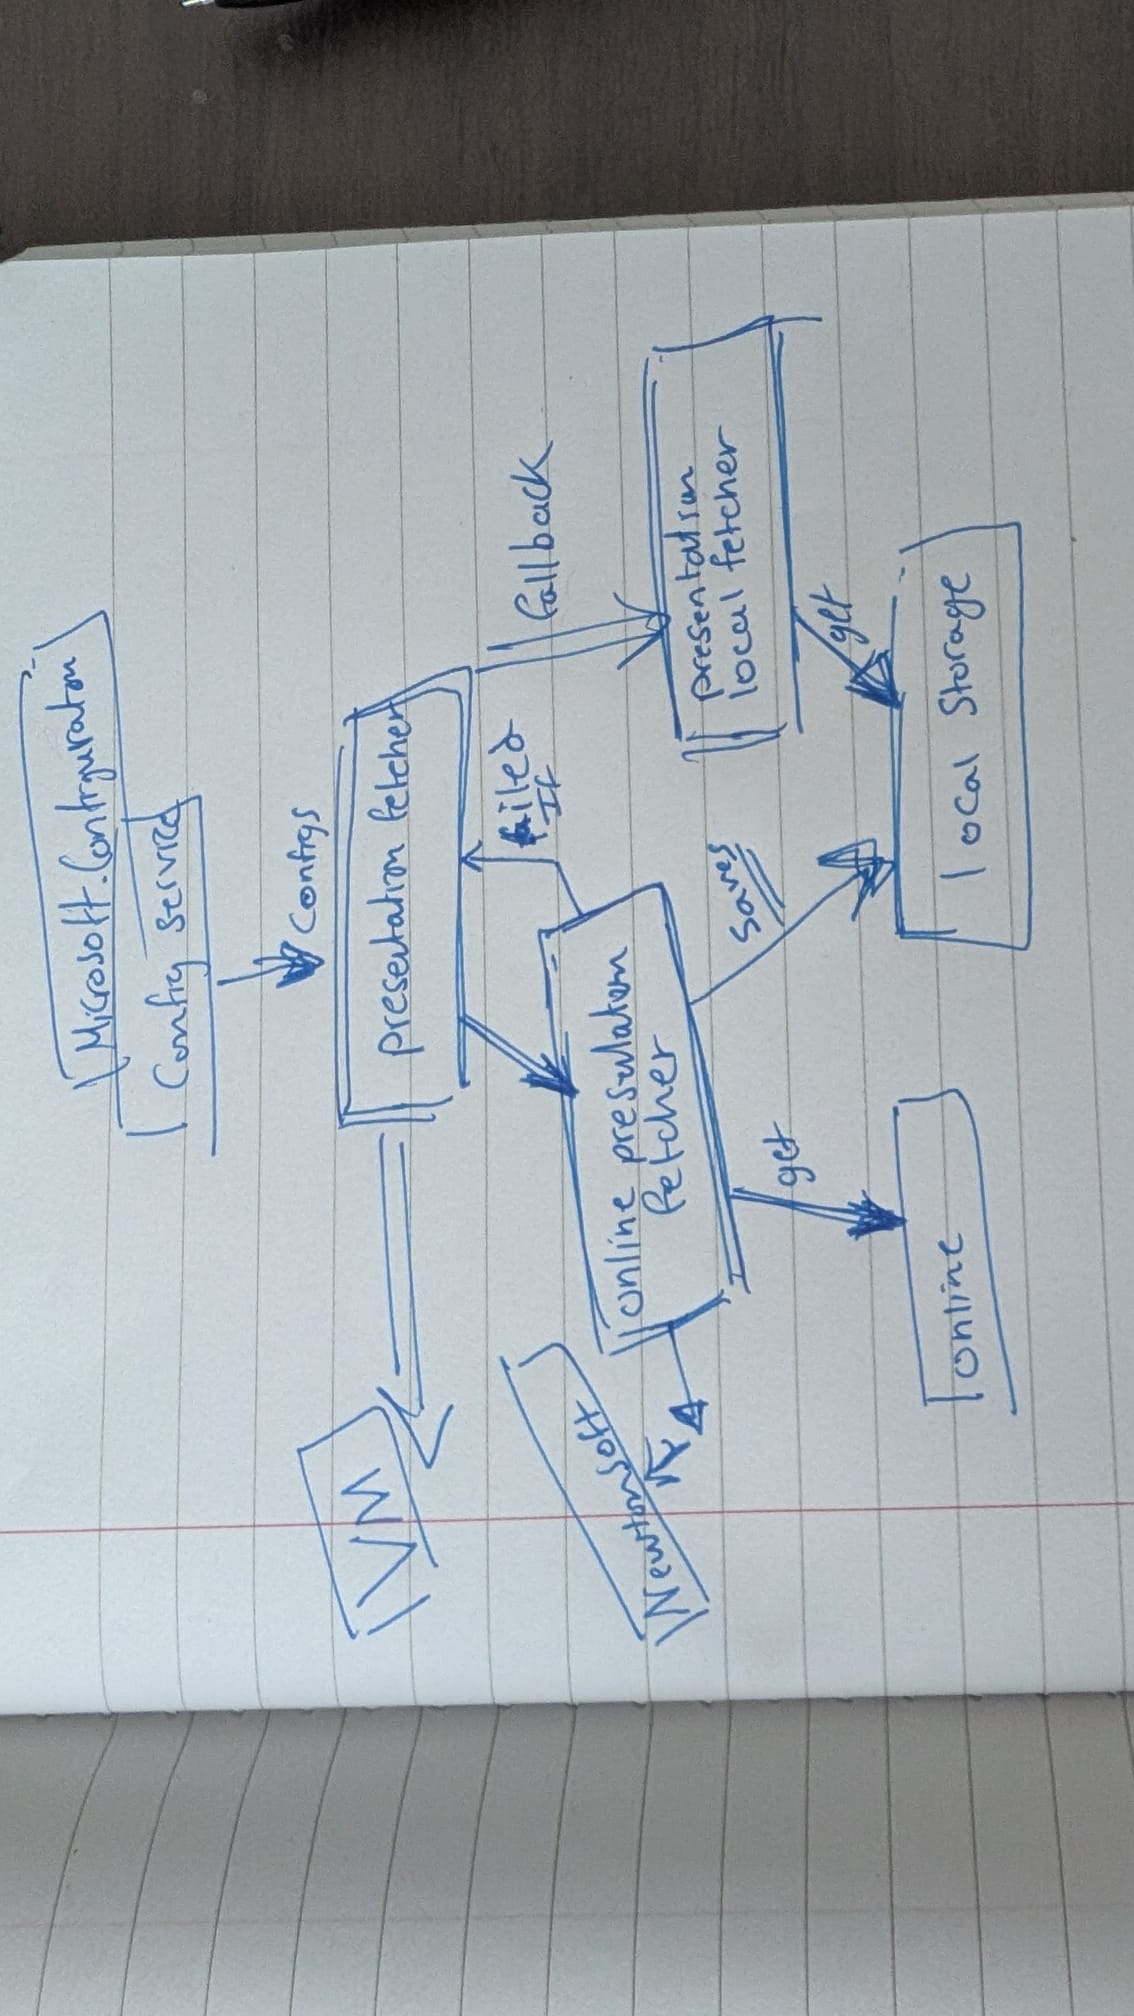 Microsoft.Configuration
Config service
Configs
VM
presentation fetcher
failed
If
fallback
Newtonsoft
online presentation
fetcher
presentation
local fetcher
saves
get
get
online
local Storage